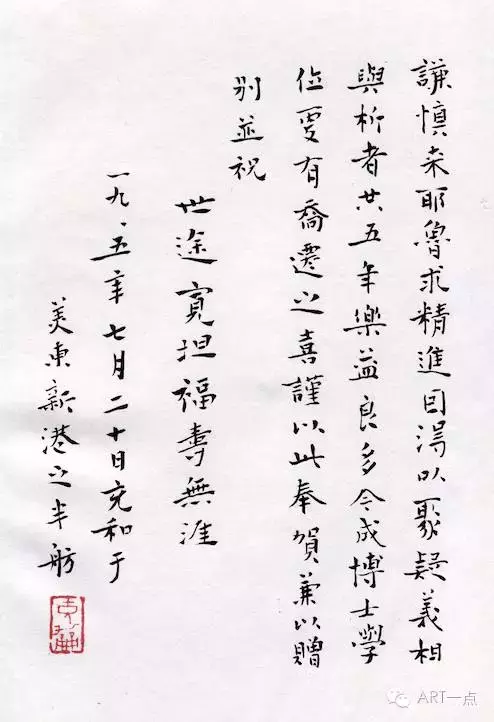 謙慎來耶魯求精進因得以聚疑義相
與析者共五年樂益良多今成博士學
位更有喬遷之喜謹以此奉賀兼以贈
别並祝
世途寬坦福壽無涯
一九、五年七月二十日充和于
美東新港之半舫
ART一点